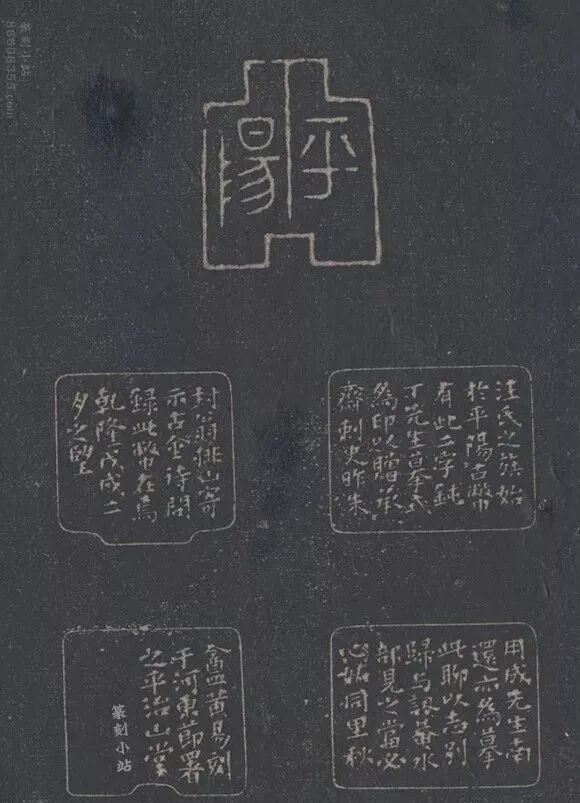 平
陽
汪氏之族始
於平陽古幣
有此二字鈍
丁先生摹式
為印以贈承
齋刺史昨朱
封翁排山寄
示古金待問
錄此幣在焉
乾隆戊戌二
月之望
用成先生南
還亦為摹
此聊以志別
歸与訒葊水
部見之當必
同里秋
盦黃易刻
于河東節署
之平治山堂
篆刻小站
篆刻小站